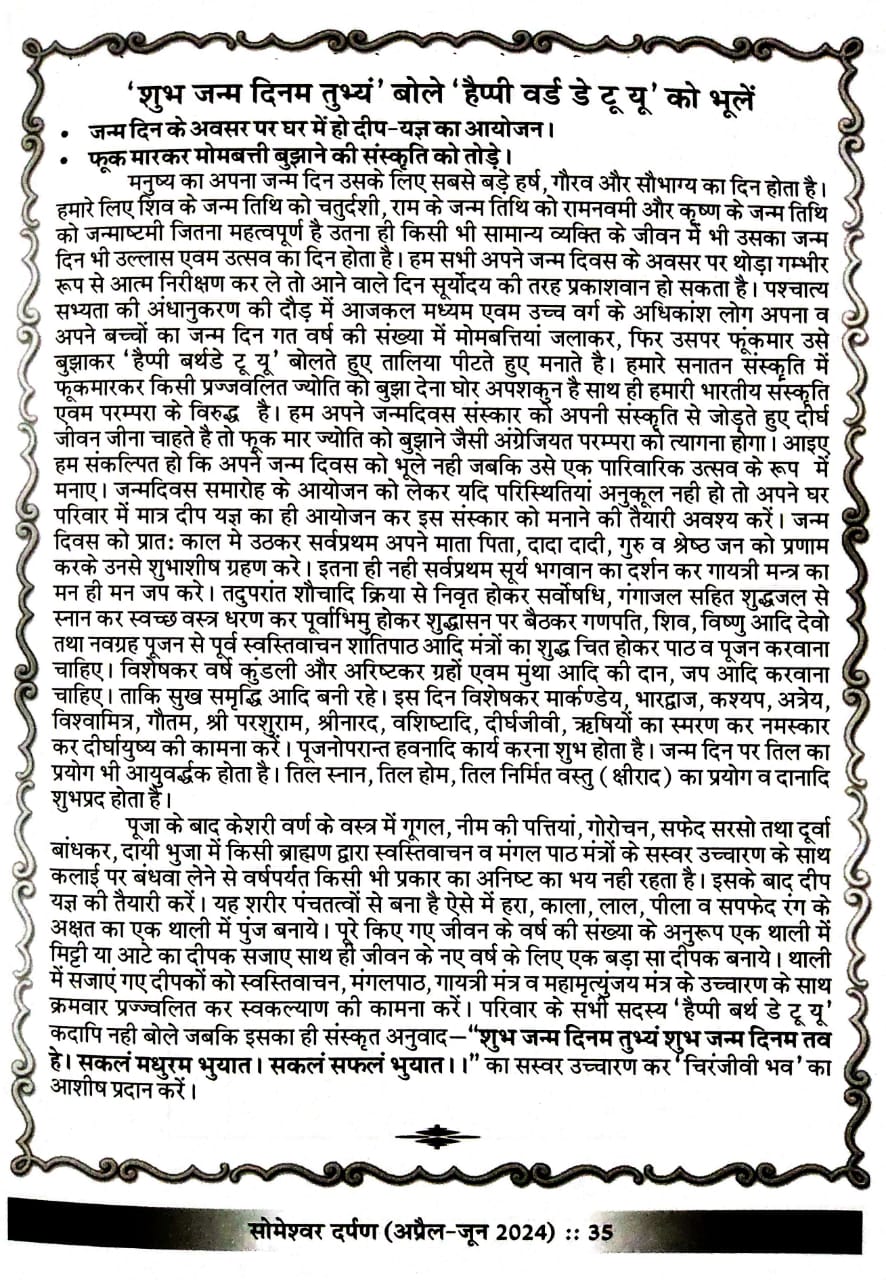 ‘शुभ जन्म दिनम तुभ्यं’ बोले ‘हैप्पी वर्ड डे टू यू’ को भूलें
• जन्म दिन के अवसर पर घर में हो दीप-यज्ञ का आयोजन।
• फूक मारकर मोमबत्ती बुझाने की संस्कृति को तोड़े।
मनुष्य का अपना जन्म दिन उसके लिए सबसे बड़े हर्ष, गौरव और सौभाग्य का दिन होता है।
हमारे लिए शिव के जन्म तिथि को चतुर्दशी, राम के जन्म तिथि को रामनवमी और कृष्ण के जन्म तिथि
को जन्माष्टमी जितना महत्वपूर्ण है उतना ही किसी भी सामान्य व्यक्ति के जीवन में भी उसका जन्म
दिन भी उल्लास एवम उत्सव का दिन होता है। हम सभी अपने जन्म दिवस के अवसर पर थोड़ा गम्भीर
रूप से आत्म निरीक्षण कर ले तो आने वाले दिन सूर्योदय की तरह प्रकाशवान हो सकता है। पश्चात्य
सभ्यता की अंधानुकरण की दौड़ में आजकल मध्यम एवम उच्च वर्ग के अधिकांश लोग अपना व
अपने बच्चों का जन्म दिन गत वर्ष की संख्या में मोमबत्तियां जलाकर, फिर उसपर फूंकमार उसे
बुझाकर ‘हैप्पी बर्थडे टू यू’ बोलते हुए तालिया पीटते हुए मनाते है। हमारे सनातन संस्कृति में
फूकमारकर किसी प्रज्जवलित ज्योति को बुझा देना घोर अपशकुन है साथ ही हमारी भारतीय संस्कृति
एवम परम्परा के विरुद्ध है। हम अपने जन्मदिवस संस्कार को अपनी संस्कृति से जोड़ते हुए दीर्घ
जीवन जीना चाहते है तो फूक मार ज्योति को बुझाने जैसी अंग्रेजियत परम्परा को त्यागना होगा। आइए
हम संकल्पित हो कि अपने जन्म दिवस को भूले नही जबकि उसे एक पारिवारिक उत्सव के रूप में
मनाए। जन्मदिवस समारोह के आयोजन को लेकर यदि परिस्थितियां अनुकूल नही हो तो अपने घर
परिवार में मात्र दीप यज्ञ का ही आयोजन कर इस संस्कार को मनाने की तैयारी अवश्य करें। जन्म
दिवस को प्रात: काल मे उठकर सर्वप्रथम अपने माता पिता, दादा दादी, गुरु व श्रेष्ठ जन को प्रणाम
करके उनसे शुभाशीष ग्रहण करे। इतना ही नही सर्वप्रथम सूर्य भगवान का दर्शन कर गायत्री मन्त्र का
मन ही मन जप करे। तदुपरांत शौचादि क्रिया से निवृत होकर सर्वोषधि, गंगाजल सहित शुद्धजल से
स्नान कर स्वच्छ वस्त्र धरण कर पूर्वाभिमु होकर शुद्धासन पर बैठकर गणपति, शिव, विष्णु आदि देवो
तथा नवग्रह पूजन से पूर्व स्वस्तिवाचन शांतिपाठ आदि मंत्रों का शुद्ध चित होकर पाठ व पूजन करवाना
चाहिए। विशेषकर वर्ष कुंडली और अरिष्टकर ग्रहों एवम मुंथा आदि की दान, जप आदि करवाना
चाहिए। ताकि सुख समृद्धि आदि बनी रहे। इस दिन विशेषकर मार्कण्डेय, भारद्वाज, कश्यप, अत्रेय,
विश्वामित्र, गौतम, श्री परशुराम, श्रीनारद, वशिष्टादि, दीर्घजीवी, ऋषियों का स्मरण कर नमस्कार
कर दीर्घायुष्य की कामना करें। पूजनोपरान्त हवनादि कार्य करना शुभ होता है। जन्म दिन पर तिल का
प्रयोग भी आयुवर्द्धक होता है। तिल स्नान, तिल होम, तिल निर्मित वस्तु (क्षीराद) का प्रयोग व दानादि
शुभप्रद होता है।
पूजा के बाद केशरी वर्ण के वस्त्र में गूगल, नीम की पत्तियां, गोरोचन, सफेद सरसो तथा दूर्वा
बांधकर, दायी भुजा में किसी ब्राह्मण द्वारा स्वस्तिवाचन व मंगल पाठ मंत्रों के सस्वर उच्चारण के साथ
कलाई पर बंधवा लेने से वर्षपर्यंत किसी भी प्रकार का अनिष्ट का भय नही रहता है। इसके बाद दीप
यज्ञ की तैयारी करें। यह शरीर पंचतत्वों से बना है ऐसे में हरा, काला, लाल, पीला व सपफेद रंग के
अक्षत का एक थाली में पुंज बनाये। पूरे किए गए जीवन के वर्ष की संख्या के अनुरूप एक थाली में
मिट्टी या आटे का दीपक सजाए साथ ही जीवन के नए वर्ष के लिए एक बड़ा सा दीपक बनाये। थाली
में सजाएं गए दीपकों को स्वस्तिवाचन, मंगलपाठ, गायत्री मंत्र व महामृत्युंजय मंत्र के उच्चारण के साथ
क्रमवार प्रज्ज्वलित कर स्वकल्याण की कामना करें। परिवार के सभी सदस्य ‘हैप्पी बर्थ डे टू यू’
कदापि नही बोले जबकि इसका ही संस्कृत अनुवाद–“शुभ जन्म दिनम तुभ्यं शुभ जन्म दिनम तव
हे। सकलं मधुरम भुयात। सकलं सफलं भुयात।।” का सस्वर उच्चारण कर ‘चिरंजीवी भव’ का
आशीष प्रदान करें।
सोमेश्वर दर्पण (अप्रैल-जून 2024) :: 35